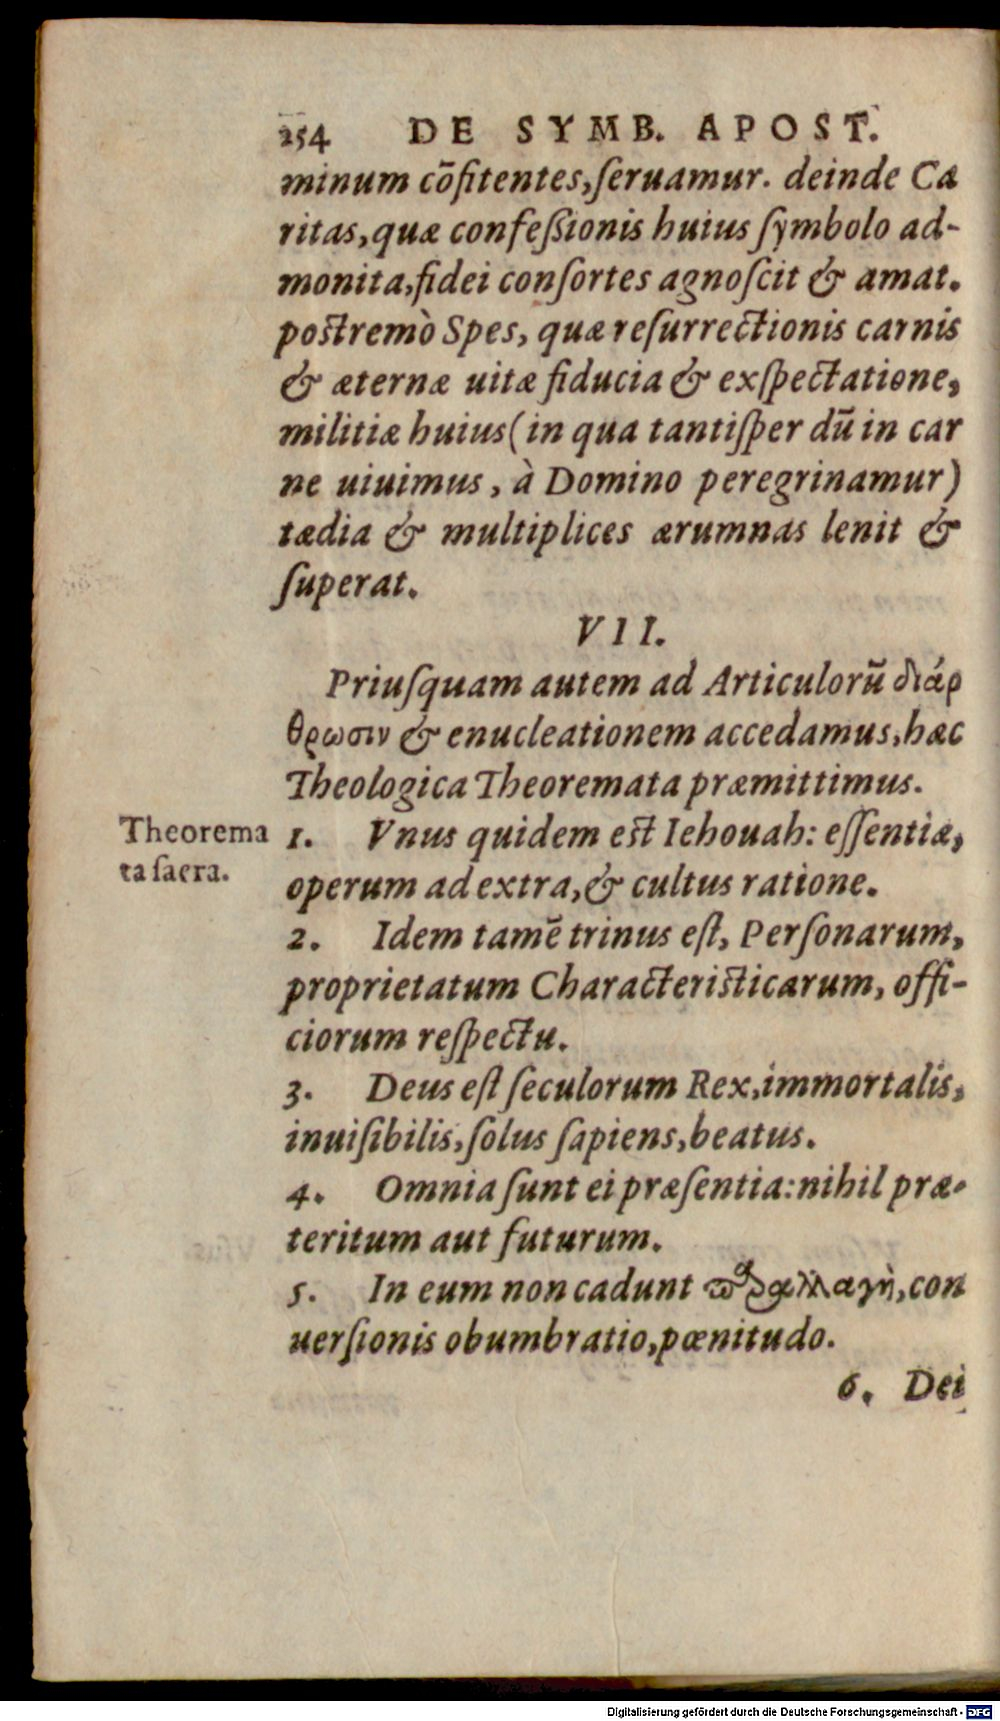 254 DE SYMB. APOST.
minum cõfitentes,ſeruamur. deinde Ca
ritas,quæ confeſsionis huius ſymbolo ad-
monita,fidei conſortes agnoſcit & amat.
poſtremò Spes, quæ reſurrectionis carnis
& æternæ uitæ fiducia & exſpectatione,
militiæ huius (in qua tantiſper dũ in car
ne uiuimus, à Domino peregrinamur)
tædia & multiplices ærumnas lenit &
ſuperat.
VII.
Priuſquam autem ad Articulorũ διάρ
θρωσιν & enucleationem accedamus,hæc
Theologica Theoremata præmittimus.
Theorema
ta ſacra.
1. Vnus quidem eſt Iehouah: eſſentiæ,
operum ad extra,& cultus ratione.
2. Idem tamẽ trinus eſt, Perſonarum,
proprietatum Characteriſticarum, offi-
ciorum reſpectu.
3. Deus eſt ſeculorum Rex,immortalis,
inuiſibilis,ſolus ſapiens,beatus.
4. Omnia ſunt ei præſentia:nihil præ-
teritum aut futurum.
5. In eum non cadunt παραλλαγὴ,con
uerſionis obumbratio,pœnitudo.
6. Dei
Digitalisierung gefördert durch die Deutsche Forschungsgemeinschaft - DFG